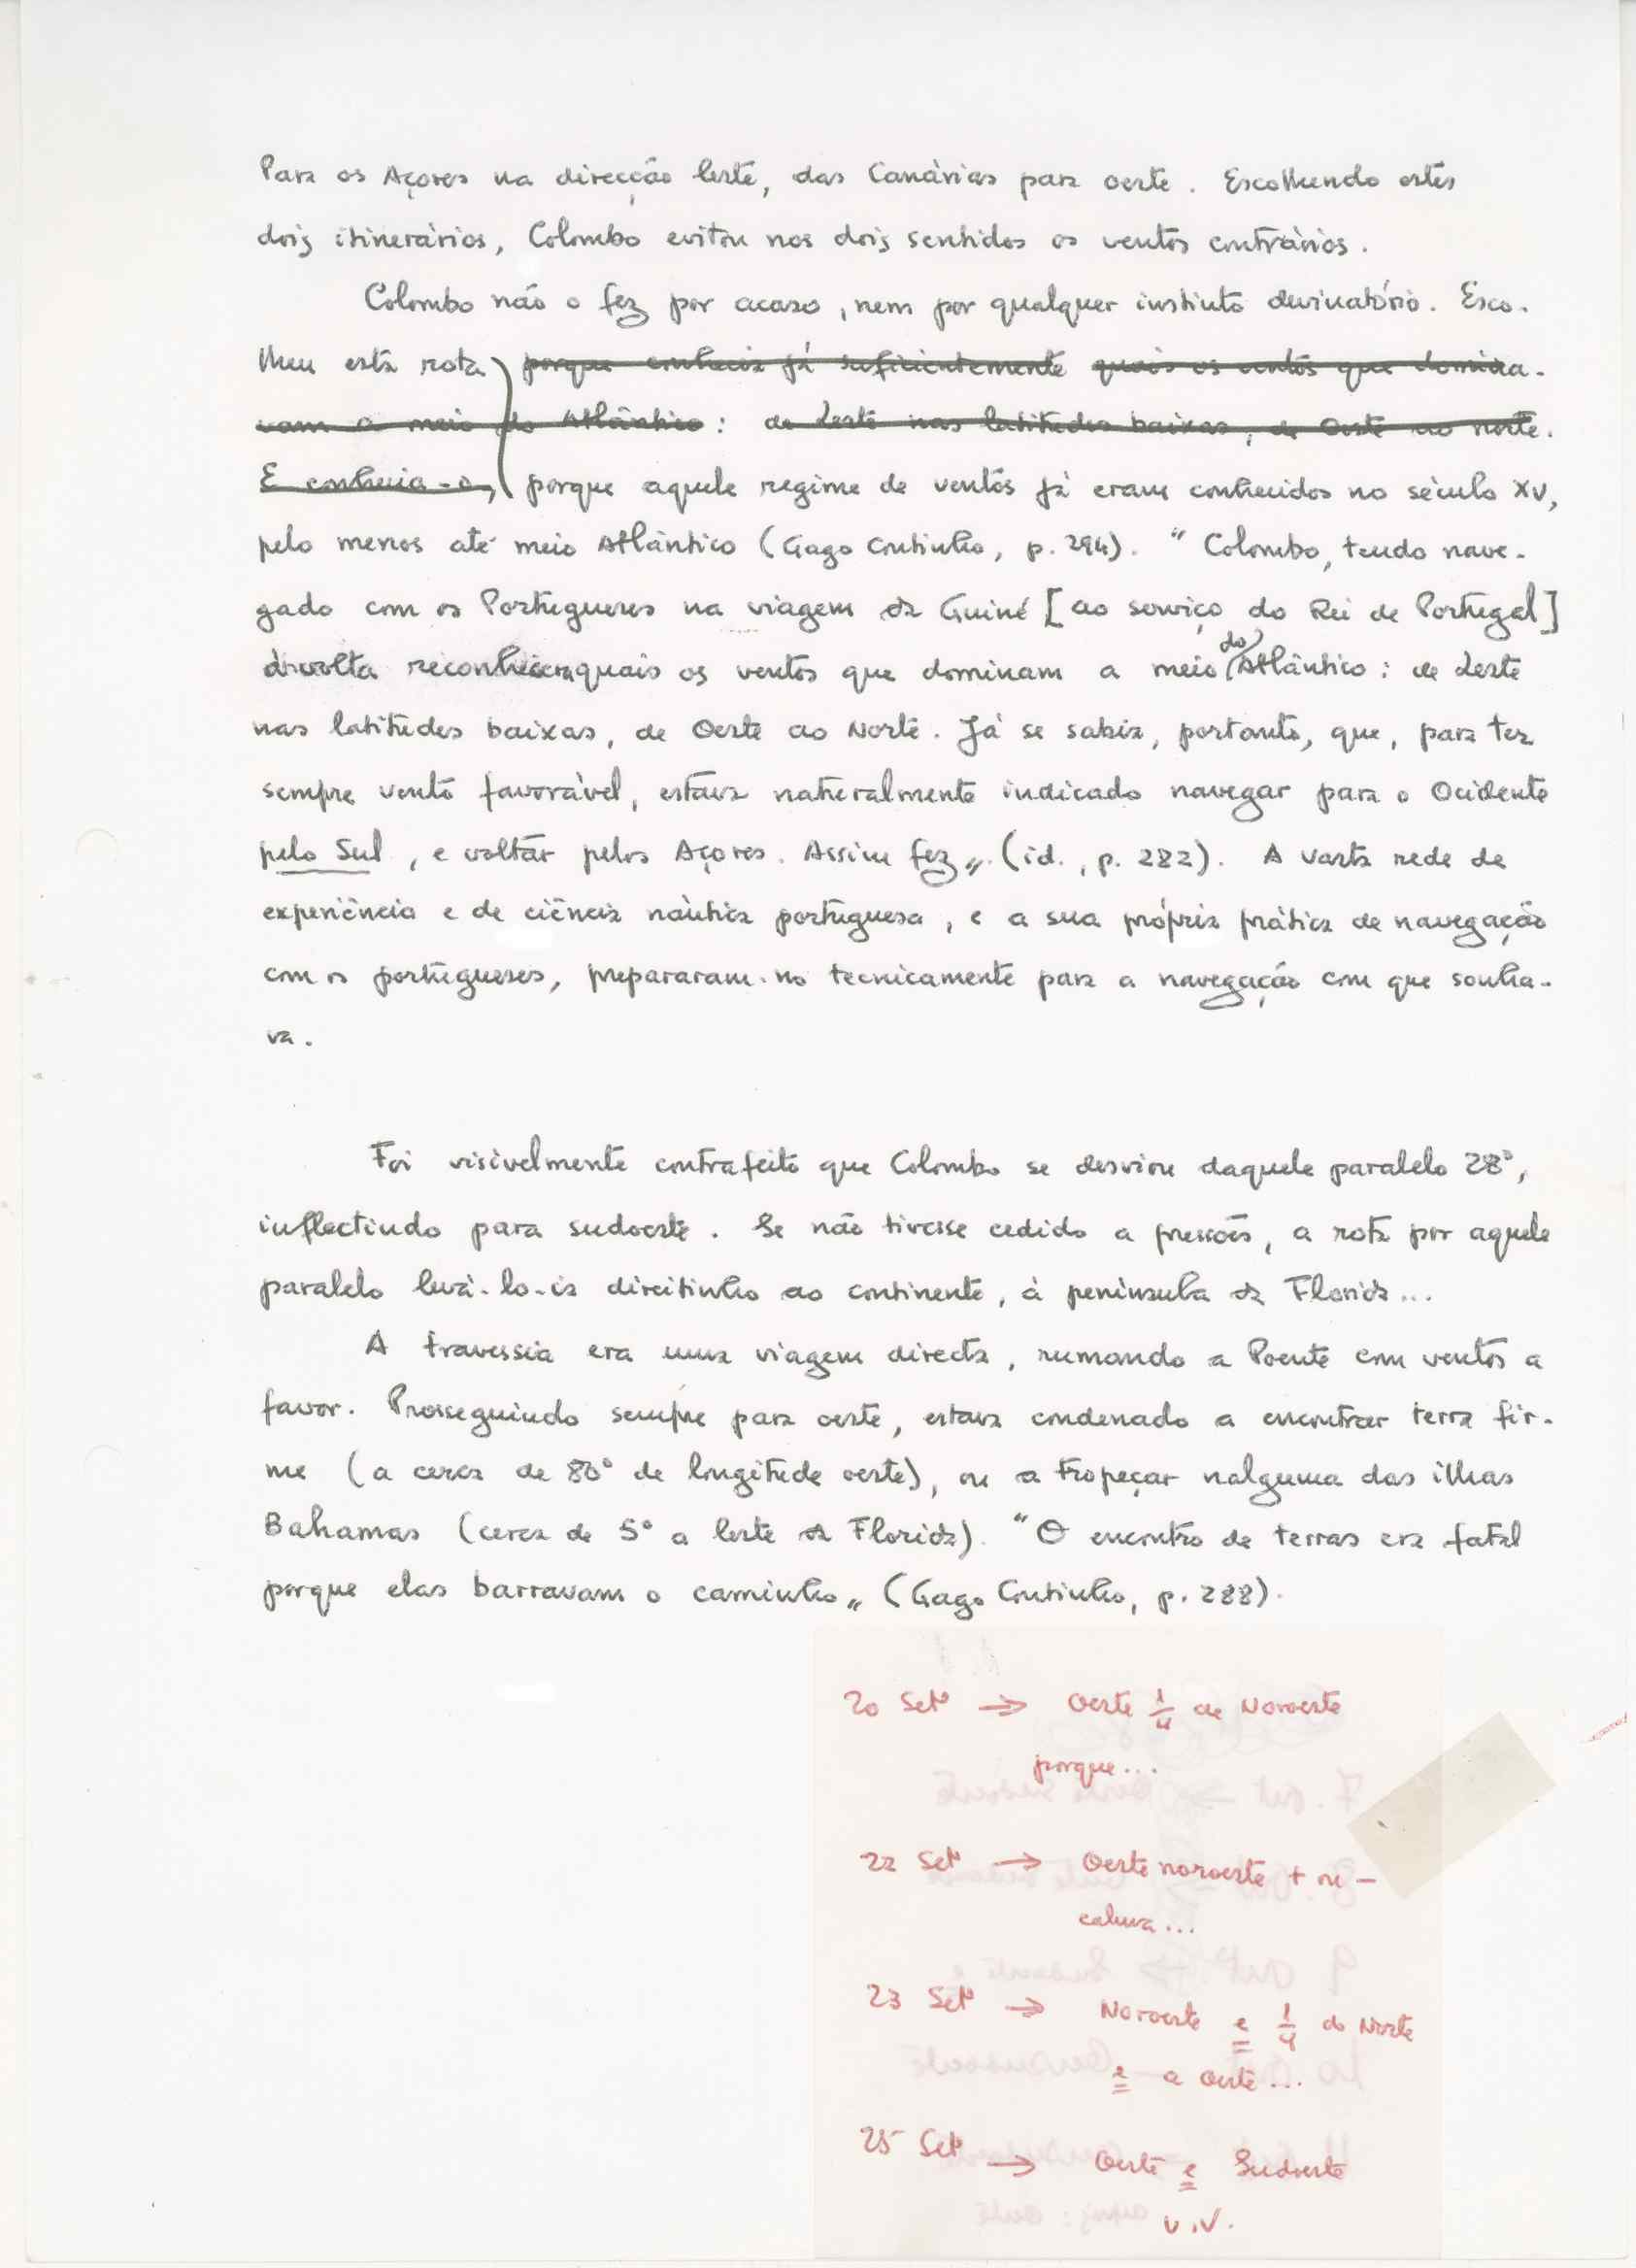 Para os Açores na direcção leste, das Canárias para oeste. Escolhendo estes
dois itinerários, Colombo evitou nos dois sentidos os ventos contrários.
Colombo não o fez por acaso, nem por qualquer instinto divinatório. Esco-
lheu esta rota porque conhecia já suficientemente quais os ventos que domina-
vam a meio do Atlântico: de Leste nas latitudes baixas, de Oeste ao norte.
E conhecia-o, porque aquele regime de ventos já eram conhecidos no século XV,
pelo menos até meio Atlântico (Gago Coutinho, p. 294). "Colombo, tendo nave-
gado com os Portugueses na viagem da Guiné [ao serviço do Rei de Portugal]
quais os ventos que dominam a meio do Atlântico: de Leste
nas latitudes baixas, de Oeste ao Norte. Já se sabia, portanto, que, para ter
sempre vento favorável, estava naturalmente indicado navegar para o Ocidente
pelo Sul, e voltar pelos Açores. Assim fez" (id., p. 282). A vasta rede de
experiência e de ciência náutica portuguesa, e a sua própria prática de navegação
com os portugueses, prepararam-no tecnicamente para a navegação com que sonha-
va.
Foi visivelmente contrafeito que Colombo se desviou daquele paralelo 28°,
inflectindo para sudoeste. Se não tivesse cedido a pressões, a rota por aquele
paralelo levá-lo-ia direitinho ao continente, à península da Florida...
A travessia era uma viagem directa, rumando a Poente com ventos a
favor. Prosseguindo sempre para oeste, estava condenado a encontrar terra fir-
me (a cerca de 80° de longitude oeste), ou a tropeçar nalguma das ilhas
Bahamas (cerca de 5° a leste da Florida). "O encontro de terras era fatal
porque elas barravam o caminho" (Gago Coutinho, p. 288).
20 Setº → Oeste 1/4 de Noroeste
porque...
22 Setº → Oeste noroeste + ou -
calma...
23 Setº → Noroeste e 1/4 do Norte
e a oeste...
25 Setº → Oeste e Sudoeste
V.V.